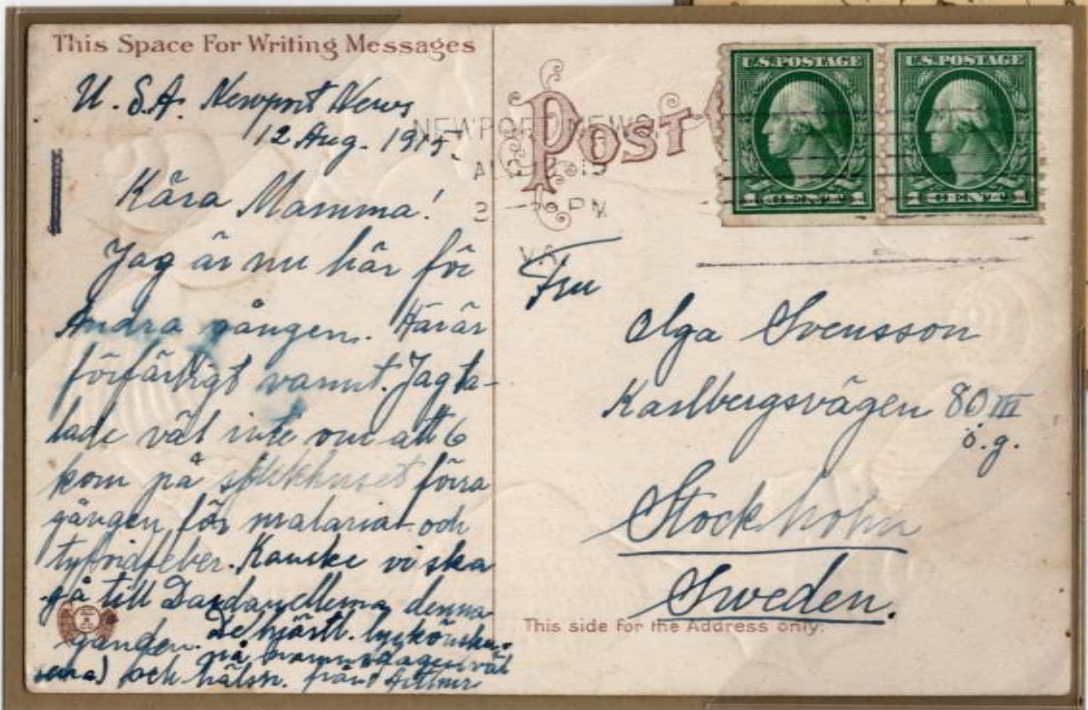 This Space For Writing Messages
U. S. A. Newport News
12 Aug. 1915.
Kära Mamma!
Jag är nu här för
Andra gången. Här är
förfärligt varmt. Jag ta-
lade väl inte om att 6
kom på sjukhuset förra
gången, för malaria och
tyfoidfeber. Kanske vi ska
gå till Dardanellerna denna
gången. De hjärtl. lyckönskn.
på namnsdagen (väl
sena) och hälsn. från Arthur
NEWPORT NEWS
2 - PM
VA.
POST
U.S. POSTAGE
1 CENT 1
U.S. POSTAGE
1 CENT 1
Fru
Olga Svensson
Karlbergsvägen 80 III
ö.g.
Stockholm
Sweden.
This side for the Address only.